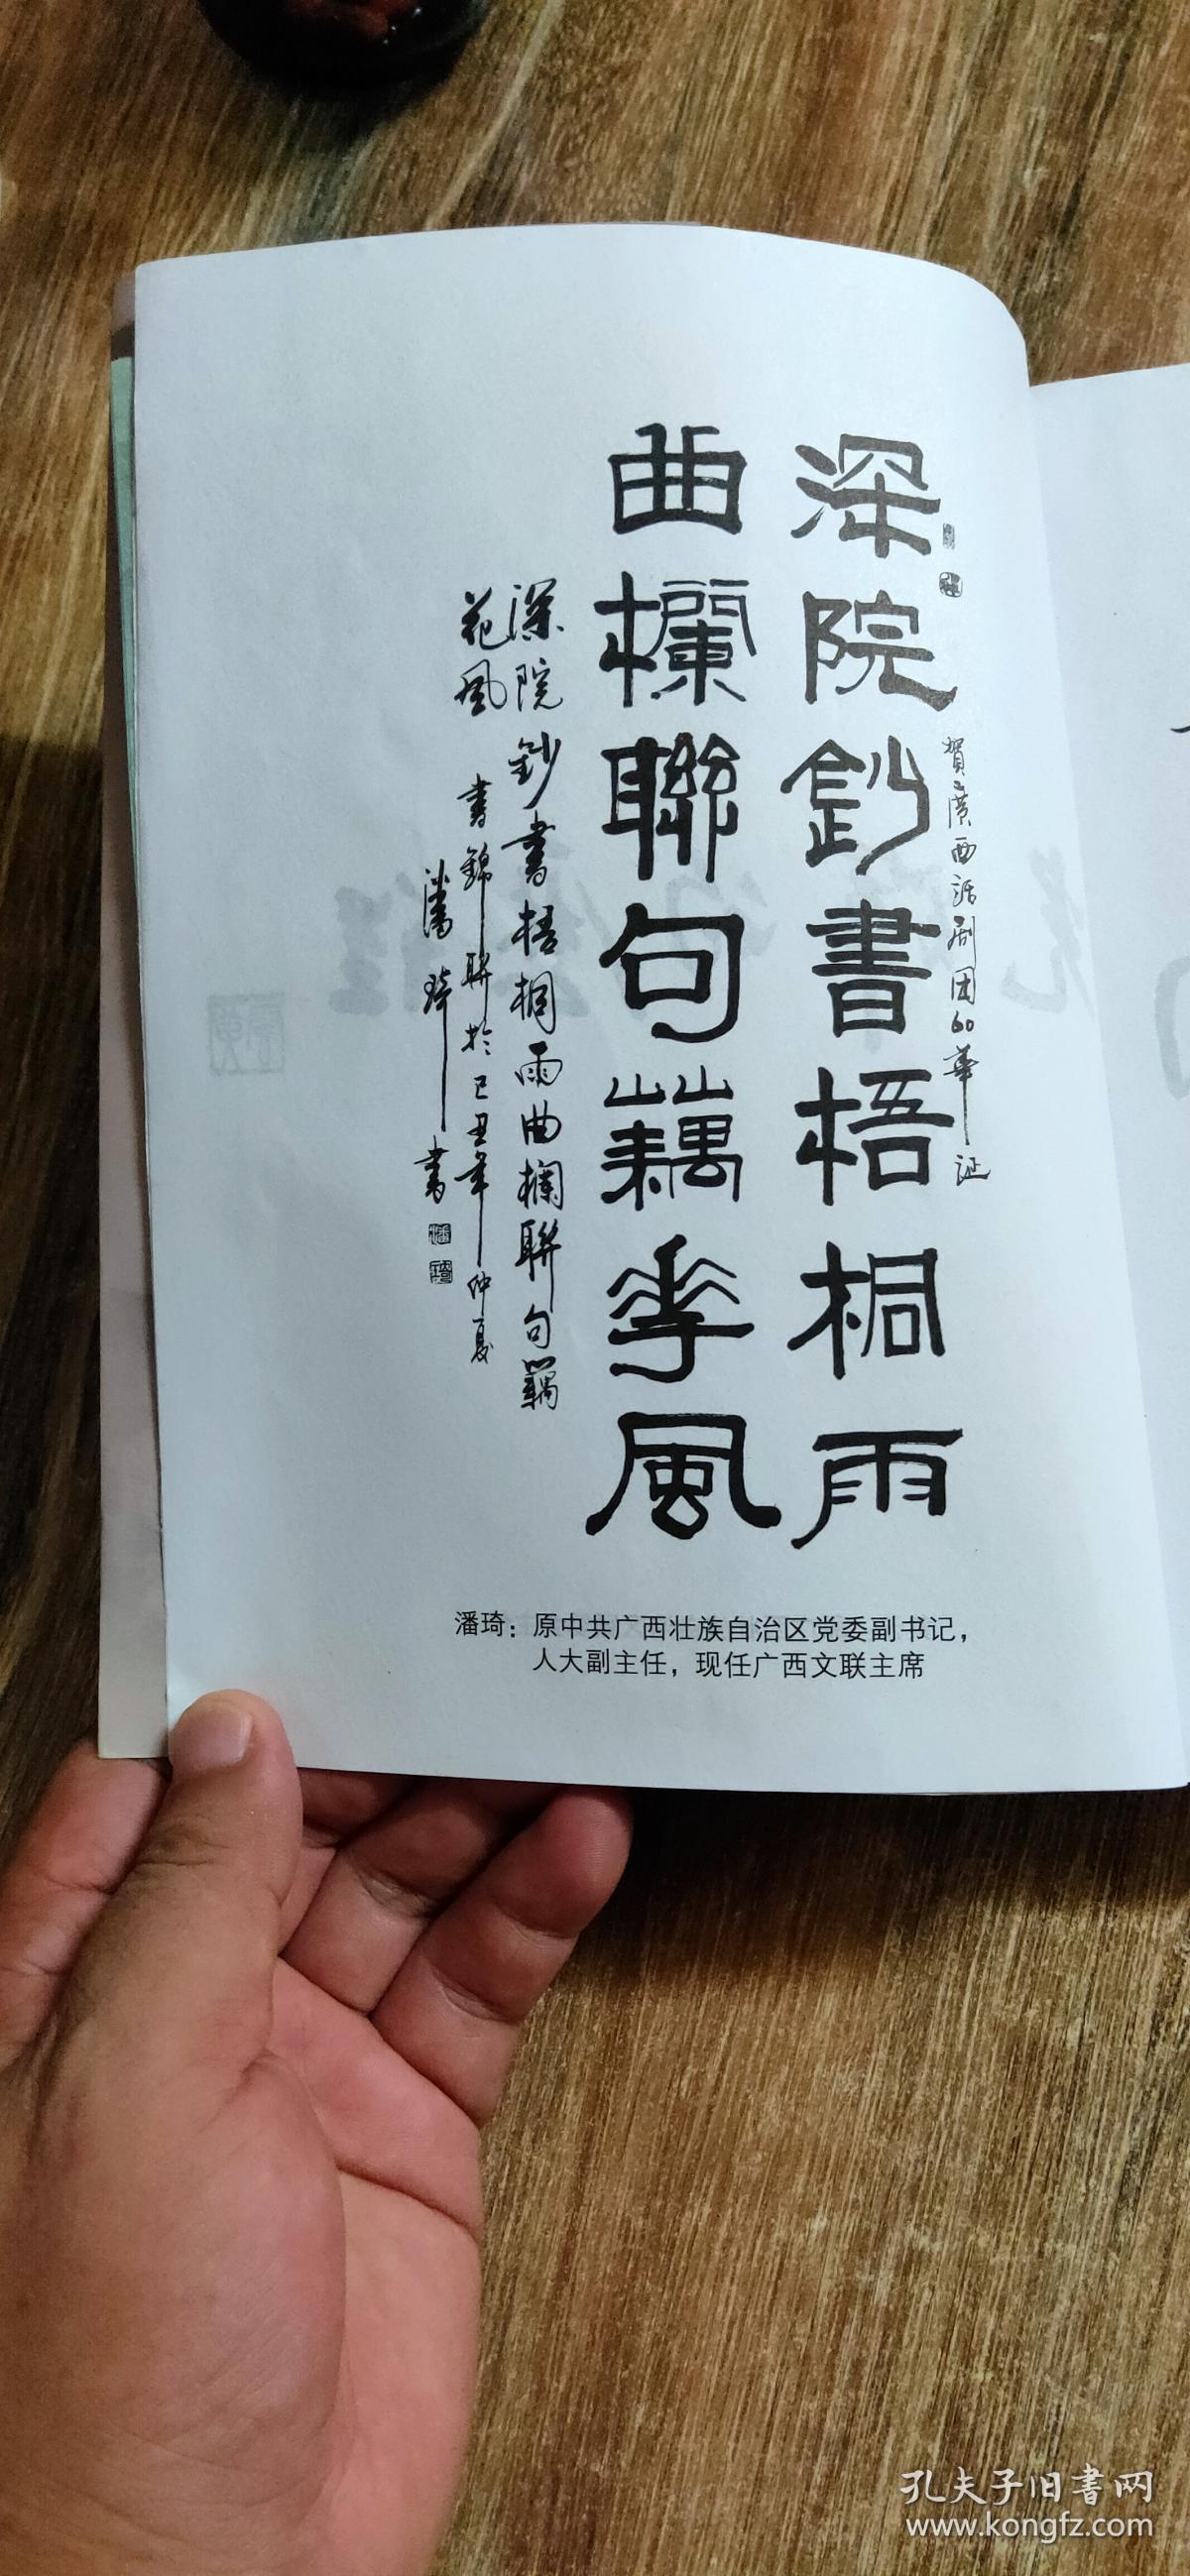 賀廣西話剧团60華证
深院鈔書梧桐雨
曲欄聯句藕花風
深院鈔書梧桐雨曲欄聯句藕
花風
書錦聯於己丑年仲夏
潘琦書
潘琦：原中共广西壮族自治区党委副书记，
人大副主任，现任广西文联主席
孔夫子旧书网
www.kongfz.com